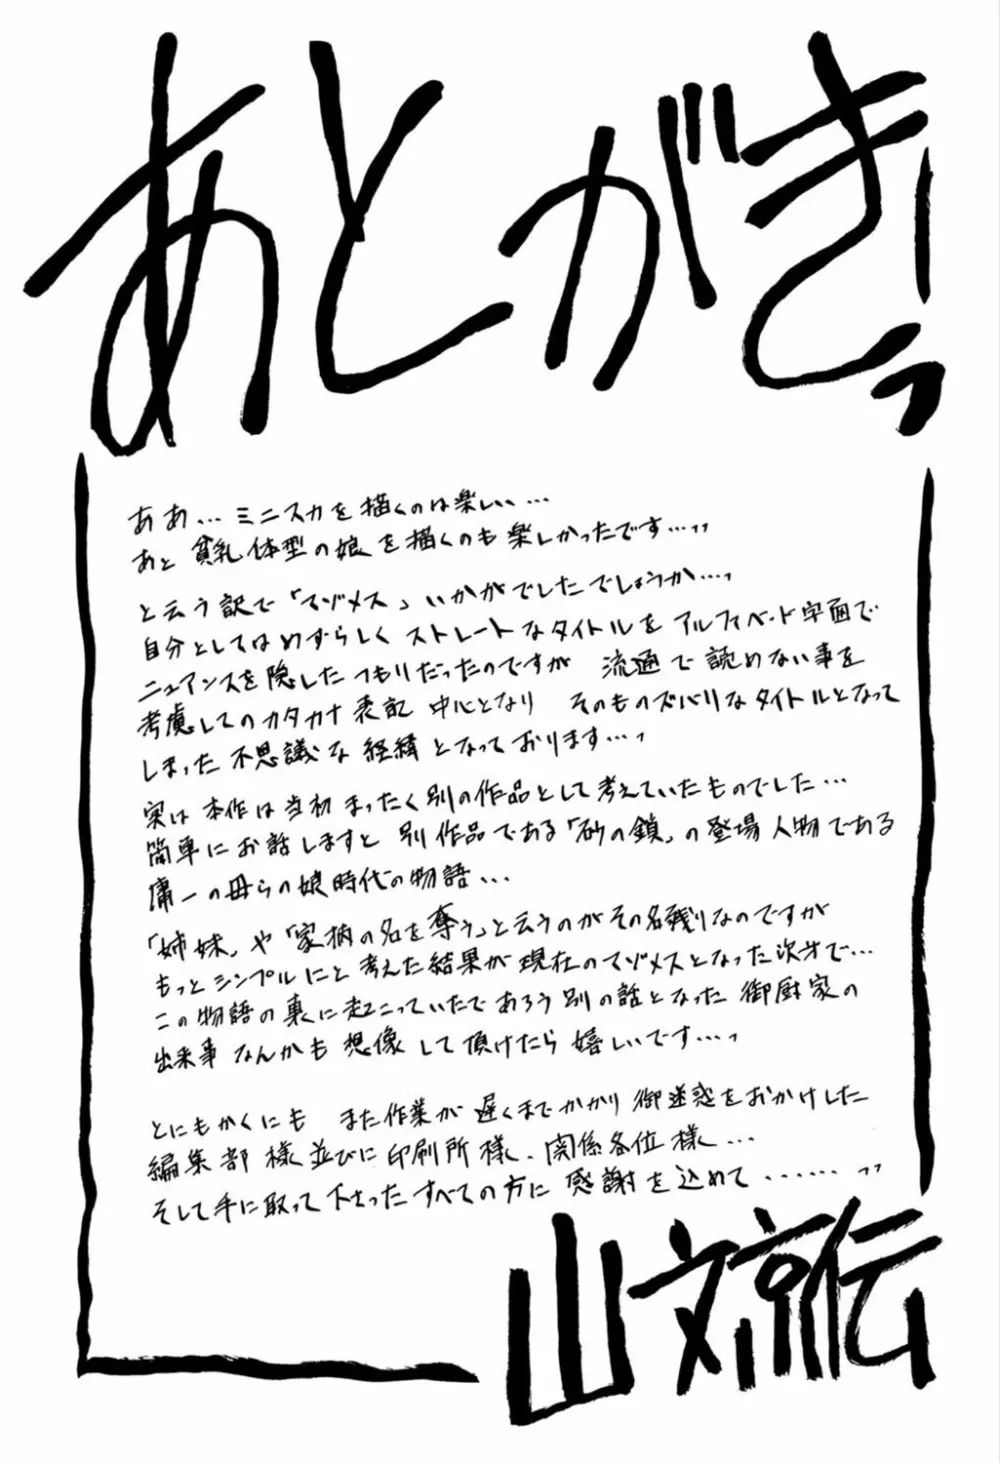 あとがきっ
ああ…ミニスカを描くのは楽しい…
あと 貧乳体型の娘を描くのも楽しかったです…っっ
と云う訳で「マゾメス」いかがでしたでしょうか…っ
自分としてはめずらしくストレートなタイトルをアルファベード字面で
ニュアンスを隠したつもりだったのですが 流通で読めない事を
考慮してのカタカナ表記中心となり そのものズバリなタイトルとなって
しまった不思議な経緯となっております…っ
実は本作は当初まったく別の作品として考えていたものでした…
簡単にお話しますと 別作品である「砂の鎖」の登場人物である
庸一の母らの娘時代の物語…
「姉妹」や「家柄の名を奪う」と云うのがその名残りなのですが
もっとシンプルにと考えた結果が現在のマゾメスとなった次才で…
この物語の裏に起こっていたであろう別の話となった御厨家の
出来事なんかも想像して頂けたら嬉しいです…っ
とにもかくにも また作業が遅くまでかかり御迷惑をおかけした
編集部様並びに印刷所様、関係各位様…
そして手に取って下さったすべての方に感謝を込めて………っっ
山文京伝